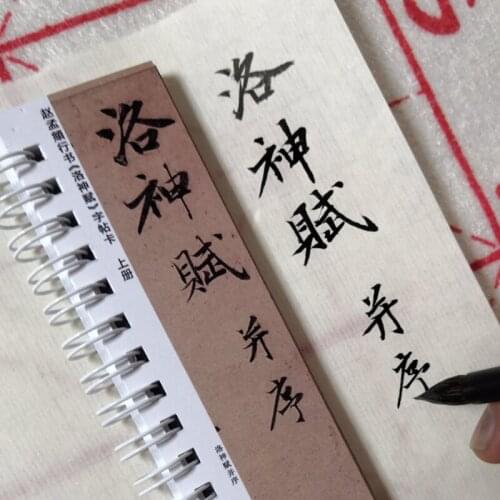 赵孟頫行书《洛神赋》字帖卡 上册
洛神賦 并序
洛神赋并序
洛神賦 并序